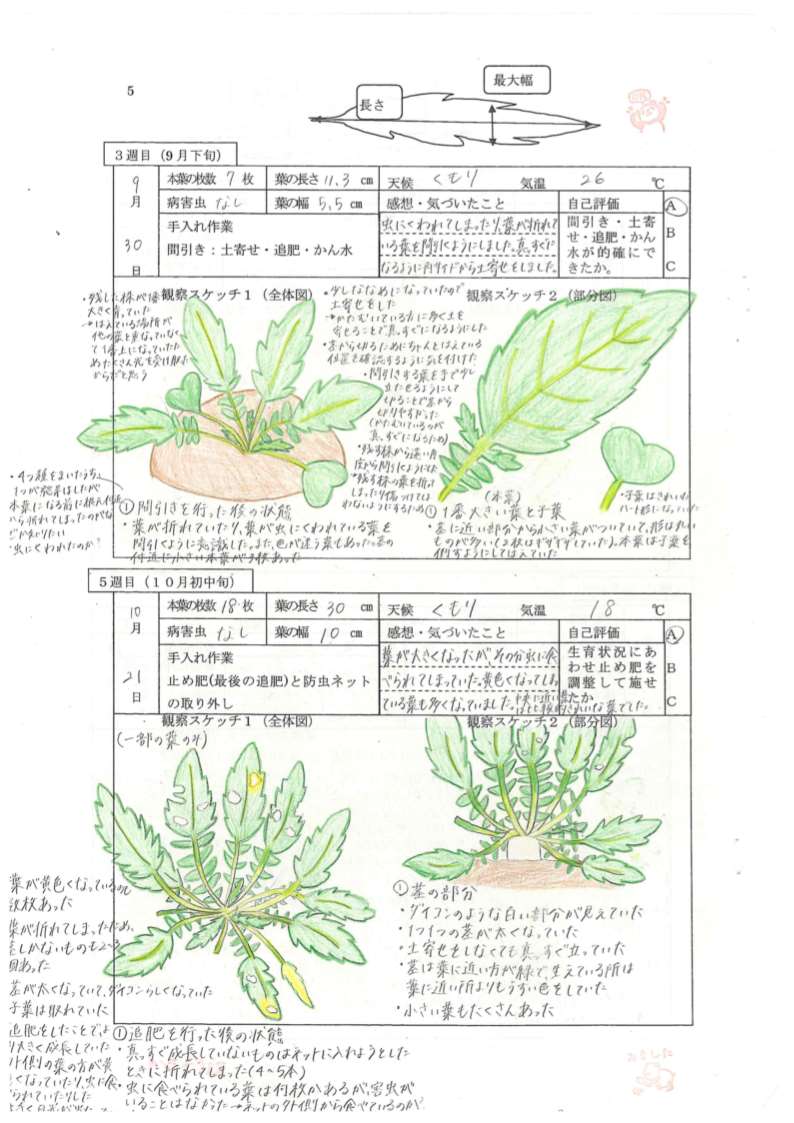 5
最大幅
長さ
3週目(9月下旬)
9月30日
本葉の枚数 7枚 葉の長さ 11.3 cm
天候 くもり 気温 26 ℃
病害虫 なし 葉の幅 5.5 cm
感想・気づいたこと
自己評価
A
B
C
手入れ作業
間引き:土寄せ・追肥・かん水
虫にくわれてしまったり、葉が折れて
いる葉を間引くようにしました。真っすぐに
なるように両サイドから土寄せをしました。
間引き・土寄
せ・追肥・かん
水が的確にで
きたか。
観察スケッチ1(全体図)
・残した株が1番
大きく育っていた
→はえている場所が
他の葉と重なっていなく
て1番上になっていた
めたくさん光を受け取れた
からだと思う
・4つ種をまいたうち、
1つが発芽はしたが
本葉になる前に
から折れてしまったのが
・虫にくわれたのか?
①間引きを行った後の状態
・葉が折れていたり、葉が虫にくわれている葉を
間引くように意識した。また、色が違う葉もあった。茎の
付近に小さい本葉が3枚あった
観察スケッチ2(部分図)
・少しななめになっていたので
土寄せをした
→かたむいている方に多く土を
寄せることで真っすぐになるようにした
・茎から切るためにちゃんとはえている
位置を確認するように気を付けた
・間引きする葉を手で少し
立たせるようにして
切ることで茎から
切りやすかった
(かたむいているのが
真っすぐになるため)
・残す株から遠い角
度から間引くようにした
→残す株の葉を折って
しまったり傷つけては
わないようにするため
・子葉はきれいな
ハート形になっていた
(本葉)
①1番大きい葉と子葉
・茎に近い部分から小さい葉がついていて、形はきれい
ものが多いし2枚はギザギザしていた。本葉は子葉を
倒すようにしてはえていた
5週目(10月初中旬)
10月21日
本葉の枚数 18枚 葉の長さ 30 cm
天候 くもり 気温 18 ℃
病害虫 なし 葉の幅 10 cm
感想・気づいたこと
自己評価
A
B
C
手入れ作業
止め肥(最後の追肥)と防虫ネット
の取り外し
葉が大きくなったが、その分虫に食
べられてしまっていた。黄色くなってしまっ
ている葉も多くなっていました。
きれいな葉でした。
生育状況にあ
わせ止め肥を
調整して施せ
たか
観察スケッチ1(全体図)
(一部の葉のみ)
葉が黄色くなっているのも
数枚あった
葉が折れてしまったため、
茎しかないものも
あった
茎が太くなっていて、ダイコンらしくなっていた
子葉は取れていた
追肥をしたことで
り大きく成長していた
外側の葉の方が黄
くなっていたり、虫に食
られていたりした
①追肥を行った後の状態
・真っすぐ成長していないものはネットに入れようとした
ときに折れてしまった(4~5本)
・虫に食べられている葉は何枚かあるが、害虫が
いることはなかった→ネットの外側から食べているのか?
観察スケッチ2(部分図)
①茎の部分
・ダイコンのような白い部分が見えていた
・1つ1つの茎が太くなっていた
・土寄せをしなくても真っすぐ立っていた
・茎は葉に近い方が緑で、生えている所は
葉に近い所よりもうすい色をしていた
・小さい葉もたくさんあった